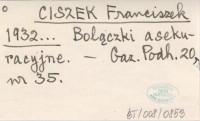 CISZEK Franciszek
1932... Bolączki aseku-
racyjne. — Gaz. Podh. 20,
nr 35.
BT/008/0853